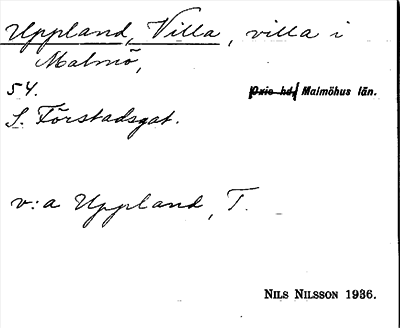 Uppland, Villa, villa i
Malmö,
54. Oxie hd, Malmöhus län.
S. Förstadsgat.
v:a Uppland, T.
NILS NILSSON 1936.